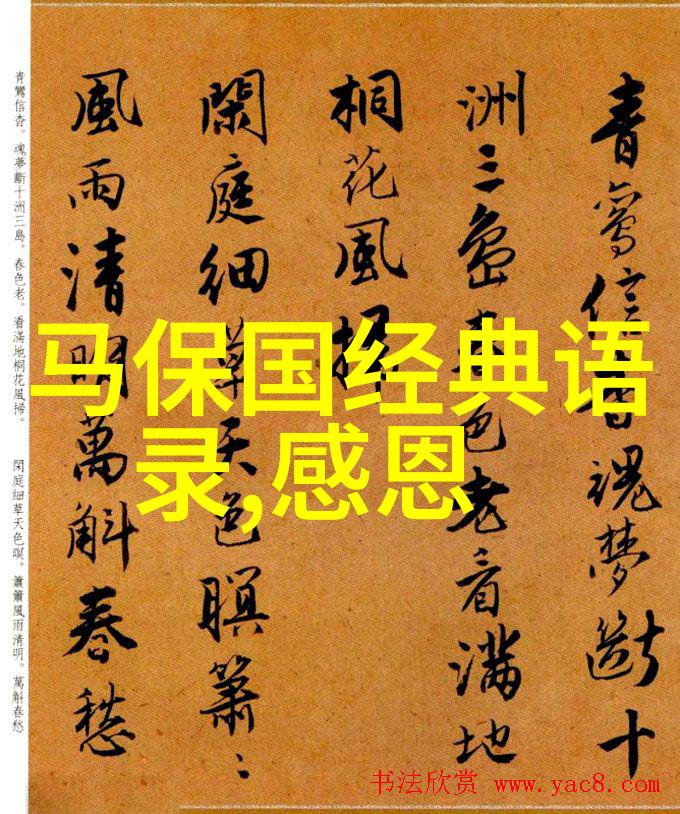 青鸞信杳魂夢斷十
洲三島春色老看滿地
桐花風掃
閑庭細草天色暝簫〻
風雨清明萬斛春愁
青鸞信杳。魂夢斷十洲三島。春色老。看滿地桐花風掃。 閑庭細草天色暝。簫簫風雨清明。萬斛春愁
马保国经典语
录,感恩
书法欣赏 www.yac8.com